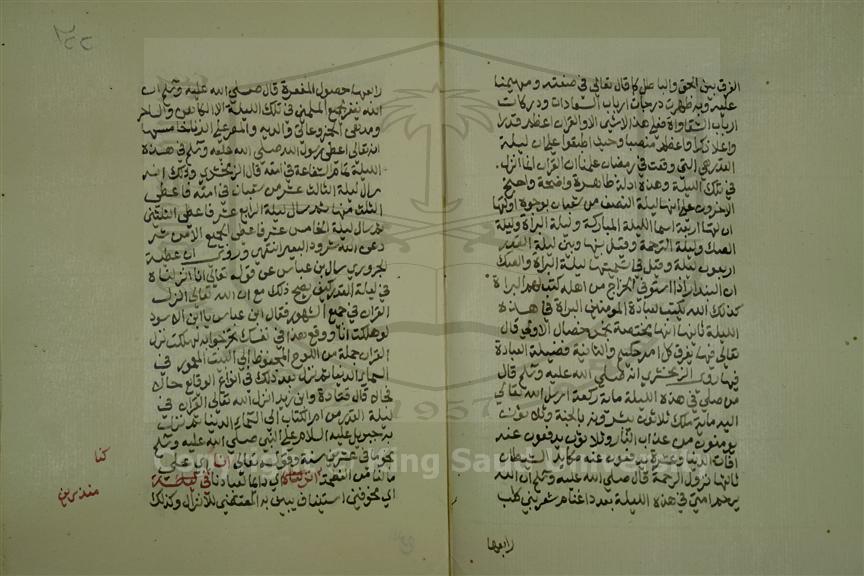 الفرق بين الحق والباطل كما قال تعالى في صفته ومهيمنا
عليه وبه ظهرت درجات ارباب السعادات ودركات
ارباب الشقاوة فعلى هذا لا شيء الا والقران اعظم قدرا
واعلا ذكرا واعظم منصبا وحيث اطبقوا على ان ليلة
القدر هي التي وقعت في رمضان علمنا ان القران انما انزل
في تلك الليلة وهذه ادلة ظاهرة واضحة واحتج
الاخرون على انها ليلة النصف من شعبان بوجوه اولها
ان لها اربعة اسما الليلة المباركة وليلة البراة وليلة
الصك وليلة الرحمة وقيل بينها وبين ليلة القدر
اربعون ليلة وقيل في تسميتها ليلة البراة والصك
ان البندار اذا استوفى الخراج من اهله كتب لهم البراة
كذلك الله يكتب لعباده المومنين البراة في هذه
الليلة ثانيها انها مختصة بخمس خصال الاولى قال
تعالى فيها يفرق كل امر حكيم والثانية فضيلة العبادة
فيها روى الزمخشري انه صلى الله عليه وسلم قال
من صلى في هذه الليلة ماية ركعة ارسل الله تعالى
اليه ماية ملك ثلاثون يبشرونه بالجنة وثلاثون
يومنونه من عذاب النار وثلاثون يدفعون عنه
افات الدنيا وعشرة يدفعون عنه مكايد الشيطان
ثالثها نزول الرحمة قال صلى الله عليه وسلم ان الله
يرحم امتي في هذه الليلة بعدد اغنام شعر بني كلب
رابعها
رابعها حصول المغفرة قال صلى الله عليه وسلم ان
الله يغفر لجميع المسلمين في تلك الليلة الا لكاهن والساحر
ومدمن الخمر وعاق والديه والمصر على الزنا خامسها
انه تعالى اعطى رسول الله صلى الله عليه وسلم في هذه
الليلة تمام الشفاعة في امته قال الزمخشري وذلك انه
سال ليلة الثالث عشر من شعبان في امته فاعطى
الثلث منها ثم سال ليلة الرابع عشر فاعطى الثلثين
ثم سال ليلة الخامس عشر فاعطى الجميع الا من شرد
على الله شرود البعير انتهى وروي ان عطية
الحروري سال ابن عباس عن قوله تعالى انا انزلناه
في ليلة القدر كيف يصح ذلك مع ان الله تعالى انزل
القران في جميع الشهور فقال ابن عباس يا ابن الاسود
لو هلكت انا ووقع هذا في نفسك ولم تجد جوابه هلكت نزل
القران جملة من اللوح المحفوظ الى البيت المعمور في
السماء الدنيا ثم نزل بعد ذلك في انواع الوقائع حالا
فحالا قال قتادة وابن زيد انزل الله تعالى القران في
ليلة القدر من ام الكتاب الى السماء الدنيا ثم نزل
به جبريل عليه السلام على النبي صلى الله عليه وسلم
نجوما في عشرين سنة وقوله تعالى انا اي على
ما لنا من العظمة كنا اي دائما لعبادنا
منذرين
اي مخوفين استئناف يبين به المقتضي للانزال وكذلك
كنا
منذرين